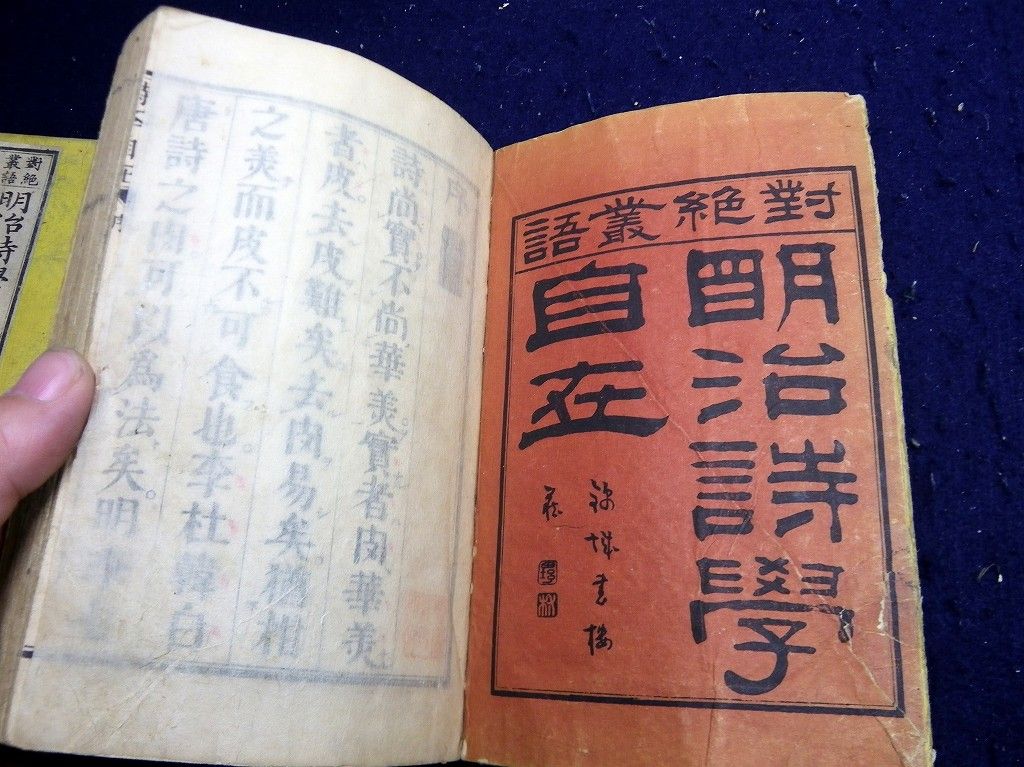 對絶叢語
明治詩學
自在
錦城書樓
藏
序
詩尚實不尚華美。實者肉華美
者皮。去皮難矣。去肉易矣。猶柑
之美而皮不可食也。李杜韓白
唐詩之肉可以為法矣。明
對絶
叢語
明治詩學